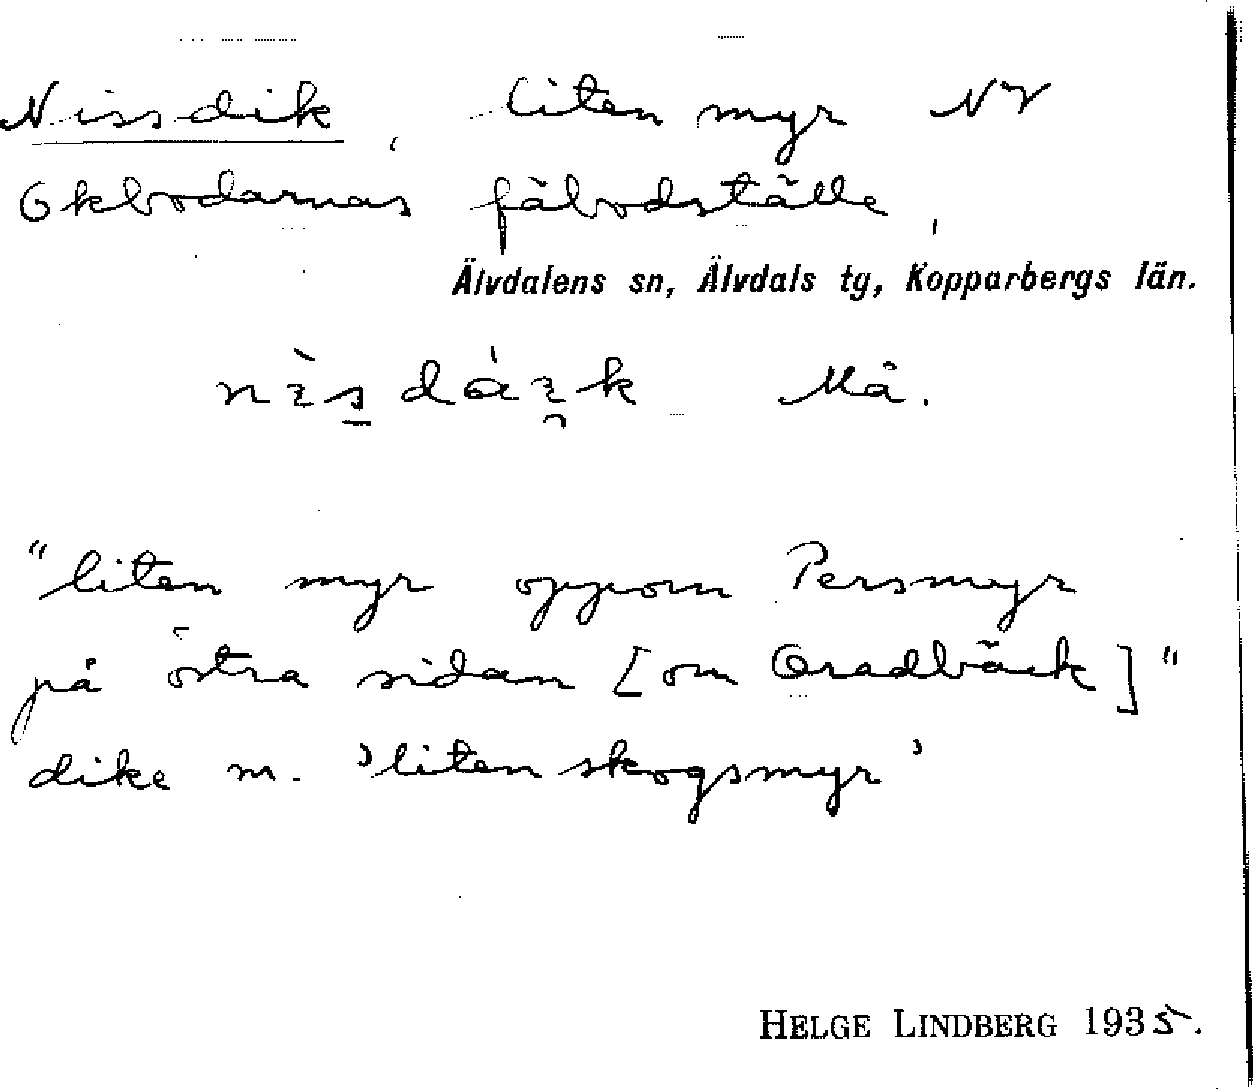 Nissdik, liten myr NV
Okbodarnas fäbodställe,
Älvdalens sn, Älvdals tg, Kopparbergs län.
Må.
"liten myr oppom Persmyr
på östra sidan [om Oradbäck]"
dike m. 'liten skogsmyr'
HELGE LINDBERG 1935.